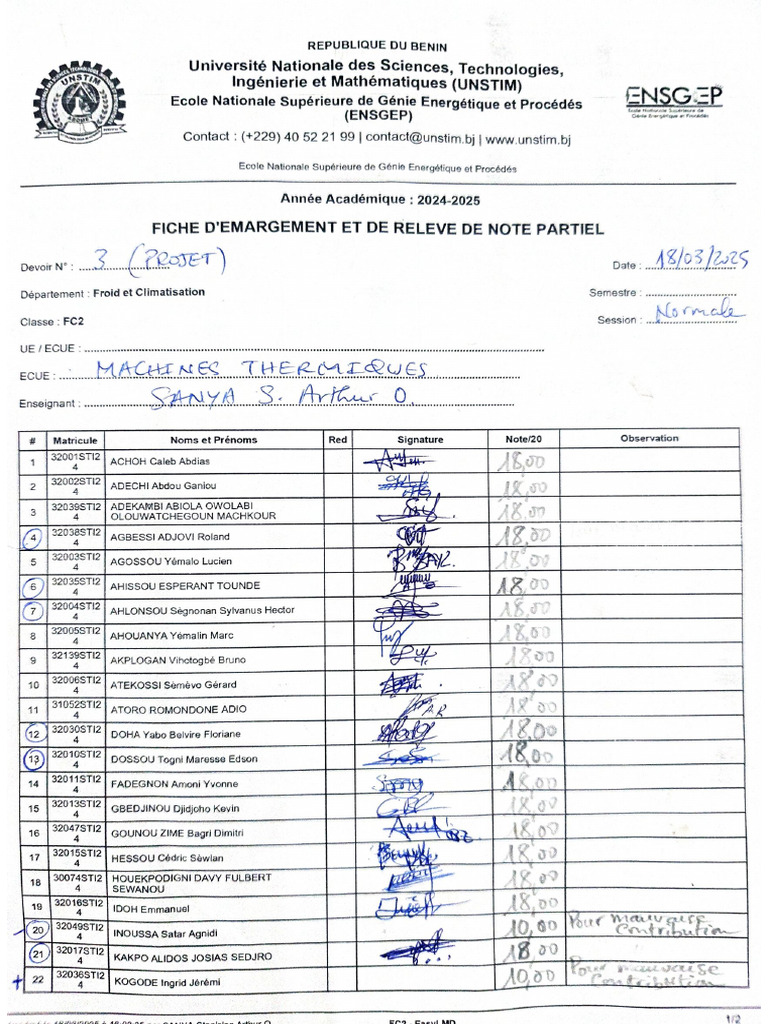 REPUBLIQUE DU BENIN
Université Nationale des Sciences, Technologies,
Ingénierie et Mathématiques (UNSTIM)
Ecole Nationale Supérieure de Génie Energétique et Procédés
(ENSGEP)
Contact : (+229) 40 52 21 99 | contact@unstim.bj | www.unstim.bj
UNSTIM
ENSGEP
Ecole Nationale Supérieure de
Génie Energétique et Procédés
Ecole Nationale Supérieure de Génie Energétique et Procédés
Année Académique : 2024-2025
FICHE D'EMARGEMENT ET DE RELEVE DE NOTE PARTIEL
Devoir N° : 3 (PROJET) Date : 18/03/2025
Département : Froid et Climatisation Semestre :
Classe : FC2 Session : Normale
UE / ECUE :
ECUE : MACHINES THERMIQUES
Enseignant : SANYA S. Arthur O.
# Matricule Noms et Prénoms Red Signature Note/20 Observation
1 32001STI24 ACHOH Caleb Abdias 18,00
2 32002STI24 ADECHI Abdou Ganiou 18,00
3 32039STI24 ADEKAMBI ABIOLA OWOLABI OLOUWATCHEGOUN MACHKOUR 18,00
4 32038STI24 AGBESSI ADJOVI Roland 18,00
5 32003STI24 AGOSSOU Yémalo Lucien 18,00
6 32035STI24 AHISSOU ESPERANT TOUNDE 18,00
7 32004STI24 AHLONSOU Sègnonan Sylvanus Hector 18,00
8 32005STI24 AHOUANYA Yémalin Marc 18,00
9 32139STI24 AKPLOGAN Vihotogbé Bruno 18,00
10 32006STI24 ATEKOSSI Sèmèvo Gérard 18,00
11 31052STI24 ATORO ROMONDONE ADIO 18,00
12 32030STI24 DOHA Yabo Belvire Floriane 18,00
13 32010STI24 DOSSOU Togni Maresse Edson 18,00
14 32011STI24 FADEGNON Amoni Yvonne 18,00
15 32013STI24 GBEDJINOU Djidjoho Kevin 18,00
16 32047STI24 GOUNOU ZIME Bagri Dimitri 18,00
17 32015STI24 HESSOU Cédric Sèwlan 18,00
18 30074STI24 HOUEKPODIGNI DAVY FULBERT SEWANOU 18,00
19 32016STI24 IDOH Emmanuel 18,00
20 32049STI24 INOUSSA Satar Agnidi 10,00 Pour mauvaise Contribution
21 32017STI24 KAKPO ALIDOS JOSIAS SEDJRO 18,00
+ 22 32036STI24 KOGODE Ingrid Jérémi 10,00 Pour mauvaise Contribution
FC2 - EasyLMD 1/2